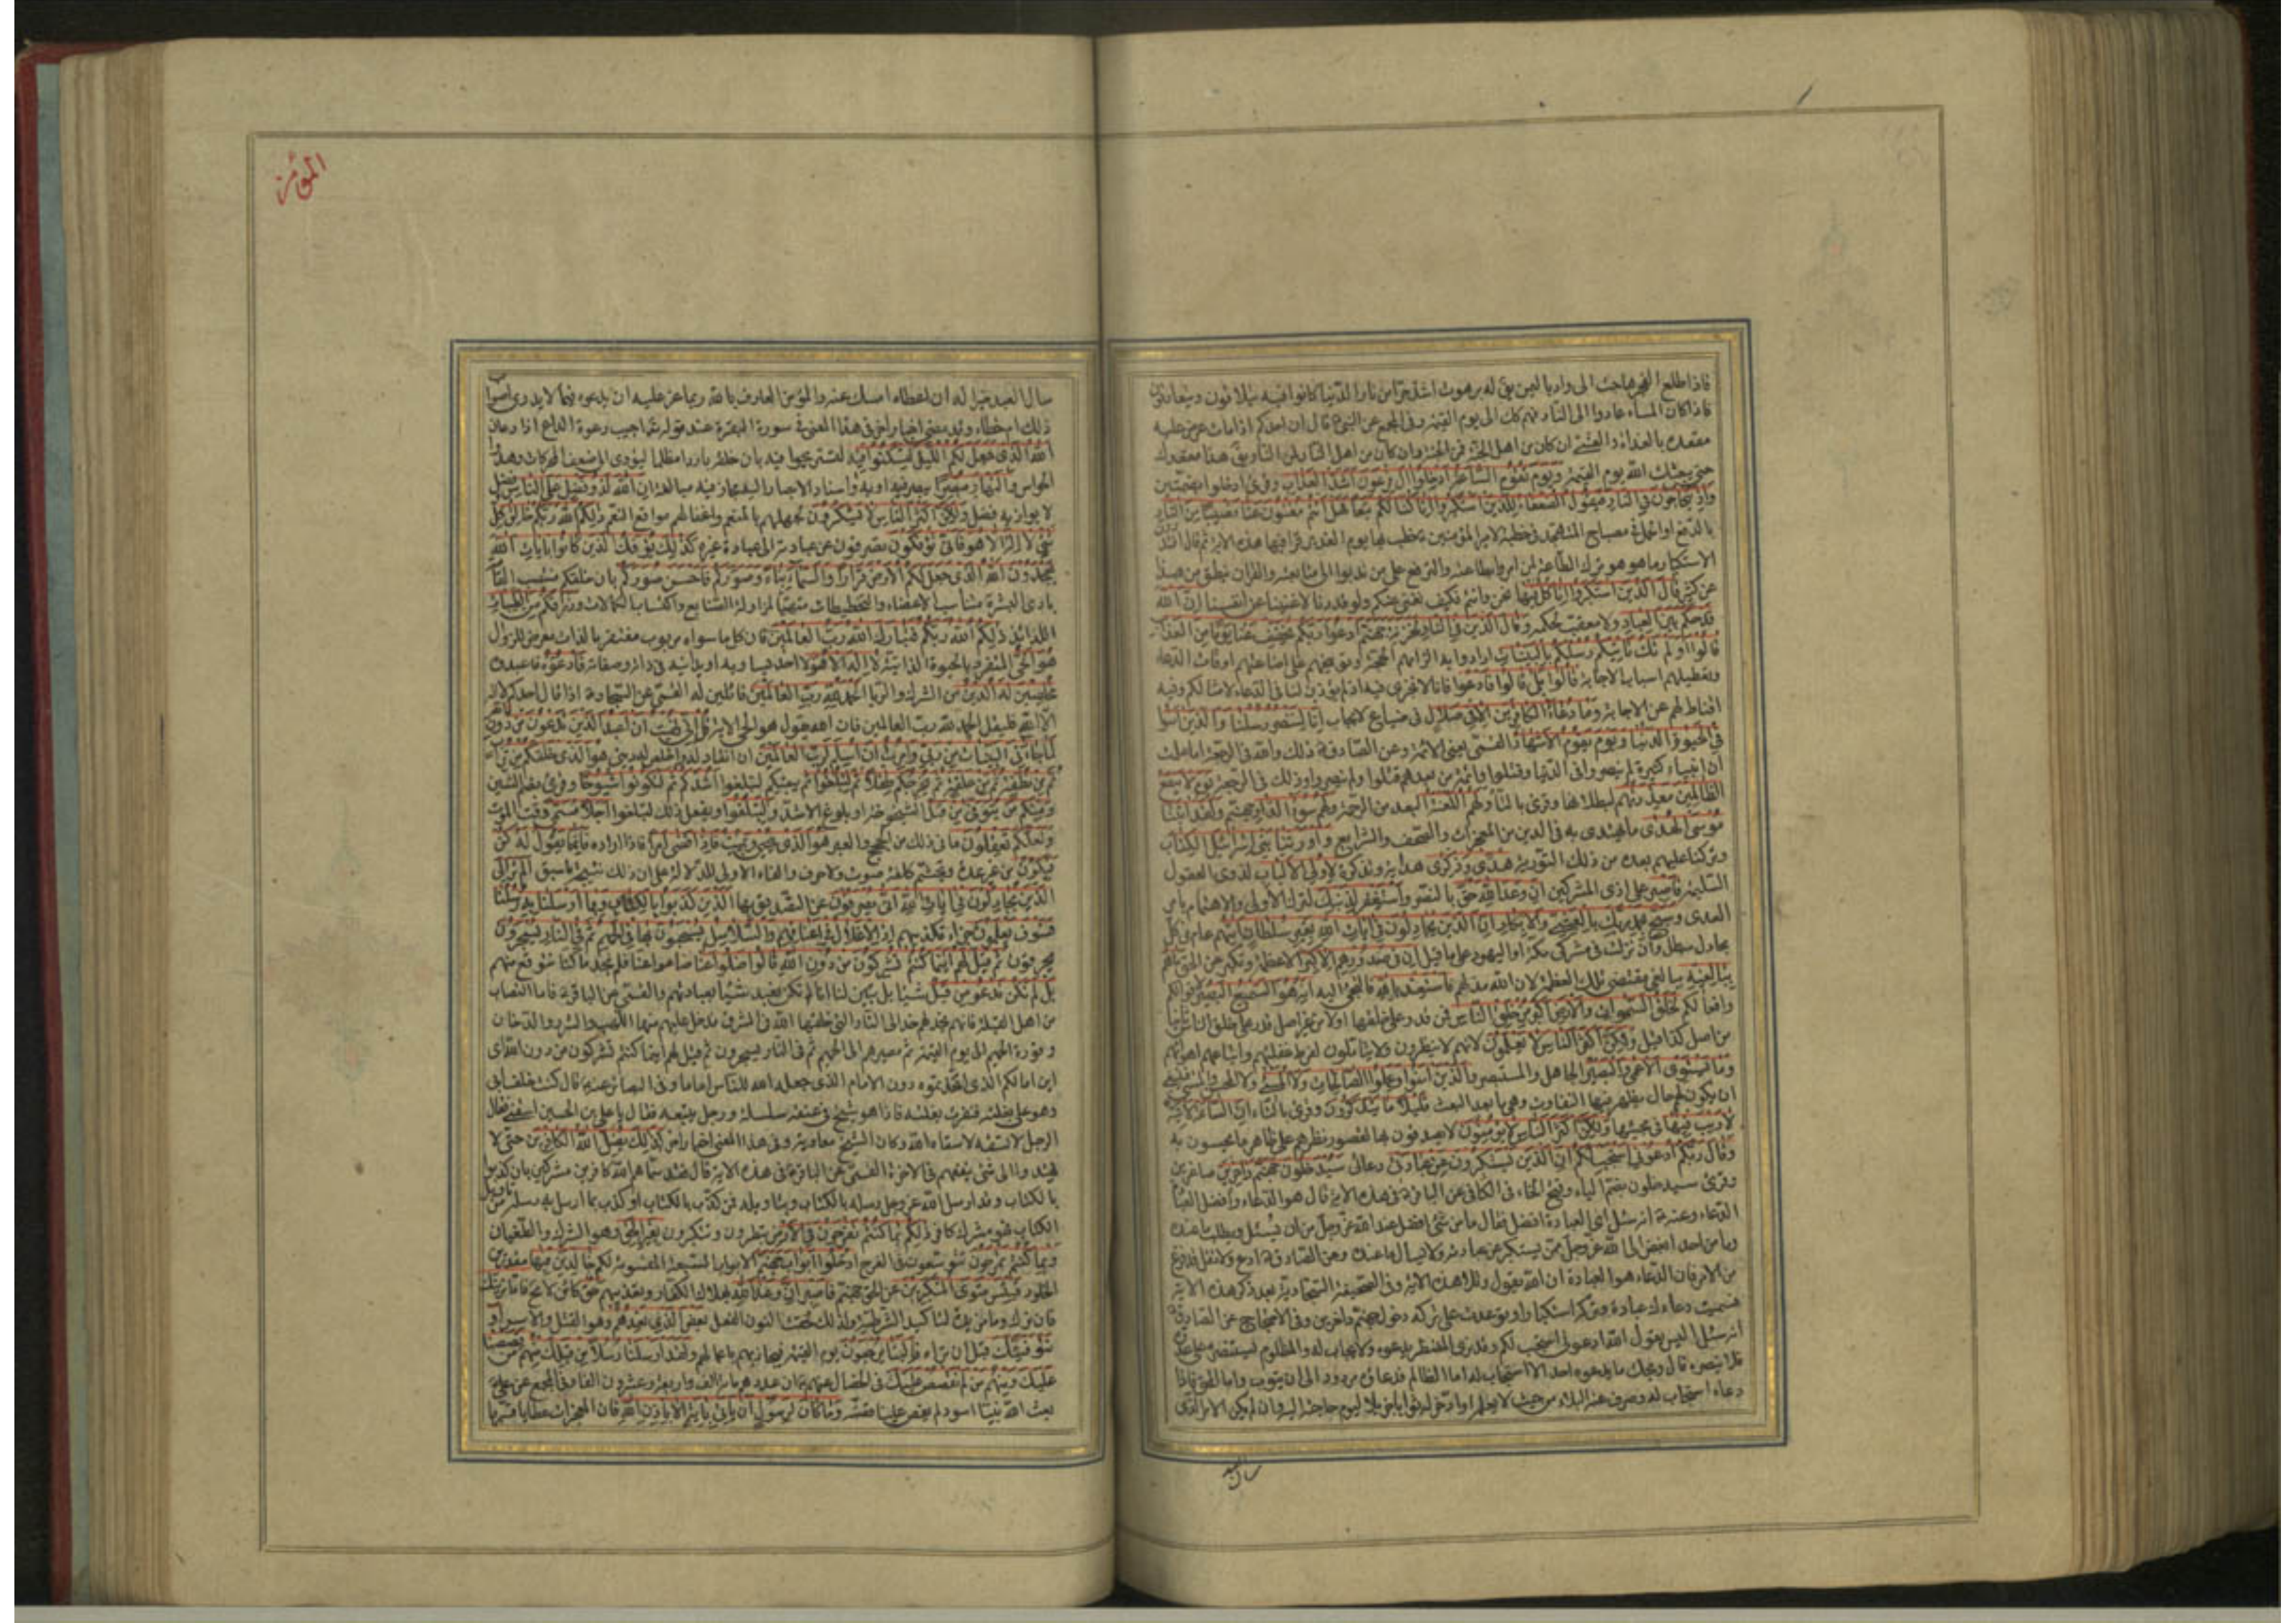 فاذا اطلع الفجر هاجت الى واد باليمن يقال له برهوت اشد حرا من نار الدنيا كانوا فيه يتلاقون ويتعارفون
فاذا كان المساء عادوا الى النار فهم كك الى يوم القيمة وفي المجمع عن النبي قال ان احدكم اذا مات عرض عليه
مقعده بالغداة والعشي ان كان من اهل الجنة فمن الجنة وان كان من اهل النار فمن النار يقال هذا مقعدك
حتى يبعثك الله يوم القيمة ويوم تقوم الساعة ادخلوا ال فرعون اشد العذاب وقرئ ادخلوا بضمتين
واذ يتحاجون في النار فيقول الضعفاء للذين استكبروا انا كنا لكم تبعا فهل انتم مغنون عنا نصيبا من النار
بالدفع او الحمل في مصباح المتهجد في خطبة لامير المؤمنين خطب بها يوم الغدير قرأ فيها هذه الاية ثم قال اتدرون
الاستكبار ما هو هو ترك الطاعة لمن امروا بطاعته والترفع على من ندبوا الى متابعته والقران ينطق من هذا
عن كثير قال الذين استكبروا انا كل فيها نحن وانتم فكيف نغني عنكم ولو قدرنا لاغنينا عن انفسنا ان الله
قد حكم بين العباد ولا معقب لحكمه وقال الذين في النار لخزنة جهنم ادعوا ربكم يخفف عنا يوما من العذاب
قالوا اولم تك تاتيكم رسلكم بالبينات ارادوا به الزامهم الحجة وتوبيخهم على اضاعتهم اوقات الدعاء
وتعطيلهم اسباب الاجابة قالوا بلى قالوا فادعوا فانا لا نجترئ فيه اذ لم يؤذن لنا في الدعاء لامثالكم وفيه
اقناط لهم عن الاجابة وما دعاء الكافرين الا في ضلال في ضياع لا يجاب انا لننصر رسلنا والذين امنوا
في الحيوة الدنيا ويوم يقوم الاشهاد القمي يعني الائمة وعن الصادق ذلك والله في الرجعة اما علمت
ان انبياء كثيرة لم ينصروا في الدنيا وقتلوا وائمة من بعدهم قتلوا ولم ينصروا وذلك في الرجعة يوم لا ينفع
الظالمين معذرتهم لبطلانها وقرئ بالتاء ولهم اللعنة البعد من الرحمة ولهم سوء الدار جهنم ولقد اتينا
موسى الهدى ما يهتدى به في الدين من المعجزات والصحف والشرايع واورثنا بني اسرائيل الكتاب
وتركنا عليهم بعده من ذلك التورية هدى وذكرى هداية وتذكرة لاولي الالباب لذوي العقول
السليمة فاصبر على اذى المشركين ان وعد الله حق بالنصر واستغفر لذنبك لترك الاولى والاهتمام بامر
العدى وسبح بحمد ربك بالعشي والابكار ان الذين يجادلون في ايات الله بغير سلطان اتيهم عام في كل
مجادل مبطل وان نزلت في مشركي مكة او اليهود على ما قيل ان في صدورهم الا كبر الا عظمة وتكبر عن الحق ما هم
ببالغيه ببالغي مقتضى تلك العظمة لان الله مذلهم فاستعذ بالله فالتجئ اليه انه هو السميع البصير لاقوالكم
وافعالكم لخلق السموات والارض اكبر من خلق الناس فمن قدر على خلقها اولا من غير اصل قدر على خلق الناس ثانيا
من اصل كذا قيل ولكن اكثر الناس لا يعلمون لانهم لا ينظرون ولا يتاملون لفرط غفلتهم واتباعهم اهوائهم
وما يستوي الاعمى والبصير الجاهل والمستبصر والذين امنوا وعملوا الصالحات ولا المسئ ولا المحسن والمسئ فينبغي
ان يكون لهم حال يظهر فيها التفاوت وهي ما بعد البعث قليلا ما يتذكرون وقرئ بالتاء ان الساعة لاتية
لا ريب فيها في مجيئها ولكن اكثر الناس لا يؤمنون لا يصدقون بها لقصور نظرهم على ظاهر ما يحسون به
وقال ربكم ادعوني استجب لكم ان الذين يستكبرون عن عبادتي دعائي سيدخلون جهنم داخرين صاغرين
وقرئ سيدخلون بضم الياء وفتح الخاء في الكافي عن الباقر في هذه الاية قال هو الدعاء وافضل العبادة
الدعاء وعنه انه سئل اي العبادة افضل فقال ما من شئ افضل عند الله عز وجل من ان يسئل ويطلب ما عنده
وما من احد ابغض الى الله عز وجل ممن يستكبر عن عبادته ولا يسال ما عنده وعن الصادق ادع ولا تقل قد فرغ
من الامر فان الدعاء هو العبادة ان الله يقول وتلا هذه الاية وفي الصحيفة السجادية بعد ذكر هذه الاية
فسميت دعاءك عبادة وتركه استكبارا وتوعدت على تركه دخول جهنم داخرين وفي الاحتجاج عن الصادق
انه سئل اليس يقول الله ادعوني استجب لكم وقد نرى المضطر يدعوه ولا يجاب له والمظلوم يستنصره على عدوه
فلا ينصره قال ويحك ما يدعوه احد الا استجاب له اما الظالم فدعاؤه مردود الى ان يتوب واما المحق فاذا
دعاه استجاب له وصرف عنه البلاء من حيث لا يعلمه او ادخر له ثوابا جزيلا ليوم حاجته اليه وان لم يكن الامر الذي
سال العبد
المؤمن
سال العبد خيرا له ان اعطاه امسك عنه والمؤمن العارف بالله ربما عز عليه ان يدعوه فيما لا يدري اصواب
ذلك ام خطاء وقد مضى اخبار اخر في هذا المعنى في سورة البقرة عند قوله تعالى اجيب دعوة الداع اذا دعان
الله الذي جعل لكم الليل لتسكنوا فيه لتستريحوا فيه بان خلقه باردا مظلما ليؤدي الى ضعف الحركات وهدوء
الحواس والنهار مبصرا يبصر فيه او به واسناد الابصار اليه مجاز فيه مبالغة ان الله لذو فضل على الناس فضل
لا يوازيه فضل ولكن اكثر الناس لا يشكرون لجهلهم بالمنعم واغفالهم مواقع النعم ذلكم الله ربكم خالق كل
شئ لا اله الا هو فانى تؤفكون تصرفون عن عبادته الى عبادة غيره كذلك يؤفك الذين كانوا بايات الله
يجحدون الله الذي جعل لكم الارض قرارا والسماء بناء وصوركم فاحسن صوركم بان خلقكم منتصب القامة
بادي البشرة متناسب الاعضاء والتخطيطات متهيأ لمزاولة الصنايع واكتساب الكمالات ورزقكم من الطيبات
اللذائذ ذلكم الله ربكم فتبارك الله رب العالمين فان كل ما سواه مربوب مفتقر بالذات معرض للزوال
هو الحي المتفرد بالحيوة الذاتية لا اله الا هو لا احد يساويه او يدانيه في ذاته وصفاته فادعوه فاعبدوه
مخلصين له الدين من الشرك والريا الحمد لله رب العالمين قائلين له القمي عن السجاد اذا قال احدكم لا اله
الا الله فليقل الحمد لله رب العالمين فان الله يقول هو الحي الاية قل اني نهيت ان اعبد الذين تدعون من دون الله
لما جاءني البينات من ربي وامرت ان اسلم لرب العالمين ان انقاد له واخلص له ديني هو الذي خلقكم من تراب
ثم من نطفة ثم من علقة ثم يخرجكم طفلا ثم لتبلغوا ثم يبقيكم لتبلغوا اشدكم ثم لتكونوا شيوخا وقرئ بضم الشين
ومنكم من يتوفى من قبل الشيخوخة او بلوغ الاشد ولتبلغوا ويفعل ذلك لتبلغوا اجلا مسمى وقت الموت
ولعلكم تعقلون ما في ذلك من الحجج والعبر هو الذي يحيي ويميت فاذا قضى امرا فاذا اراده فانما يقول له كن
فيكون من غير عدة وتجشم كلفة صوت ولا حرف والفاء الاولى للدلالة على ان ذلك نتيجة ما سبق الم تر الى
الذين يجادلون في ايات الله انى يصرفون عن التصديق بها الذين كذبوا بالكتاب وبما ارسلنا به رسلنا
فسوف يعلمون جزاء تكذيبهم اذ الاغلال في اعناقهم والسلاسل يسحبون بها في الحميم ثم في النار يسجرون
يحرقون ثم قيل لهم اينما كنتم تشركون من دون الله قالوا ضلوا عنا ضاعوا عنا فلم نجد ما كنا نتوقع منهم
بل لم نكن ندعو من قبل شيئا بل تبين لنا انا لم نكن نعبد شيئا بعبادتهم والقمي عن الباقر فاما النصاب
من اهل القبلة فانهم يخد لهم خدا الى النار التي خلقها الله في المشرق يدخل عليهم منها اللهب والشرر والدخان
وفورة الحميم الى يوم القيمة ثم مصيرهم الى الحميم ثم في النار يسجرون ثم قيل لهم اينما كنتم تشركون من دون الله اي
اين امامكم الذي اتخذتموه دون الامام الذي جعله الله للناس اماما وفي البصائر عنه قال كنت خلف ابي
وهو على بغلته فنفرت بغلته فاذا هو شيخ في عنقه سلسلة ورجل يتبعه فقال يا علي بن الحسين اسقني فقال
الرجل لا تسقه لا سقاه الله وكان الشيخ معاوية وفي هذا المعنى اخبار اخر كذلك يضل الله الكافرين حتى لا
يهتدوا الى شئ ينفعهم في الاخرة القمي عن الباقر في هذه الاية قال فقد سماهم الله كافرين مشركين بان كذبوا
بالكتاب وقد ارسل الله عز وجل رسله بالكتاب وبتاويله فمن كذب بالكتاب او كذب بما ارسل به رسله من تاويل
الكتاب فهو مشرك كافر ذلكم بما كنتم تفرحون في الارض تبطرون وتتكبرون بغير الحق وهو الشرك والطغيان
وبما كنتم تمرحون تتوسعون في الفرح ادخلوا ابواب جهنم الابواب السبعة المقسومة لكم خالدين فيها مقدرين
الخلود فبئس مثوى المتكبرين عن الحق جهنم فاصبر ان وعد الله بهلاك الكفار وتعذيبهم حق كائن لا محة فاما نرينك
فان نرك وما مزيدة لتاكيد الشرطية ولذلك لحقت النون الفعل بعض الذي نعدهم وهو القتل والاسر او
نتوفينك قبل ان تراه فالينا يرجعون يوم القيمة فنجازيهم باعمالهم ولقد ارسلنا رسلا من قبلك منهم من قصصنا
عليك ومنهم من لم نقصص عليك في الخصال عنهم ان عددهم مائة الف واربعة وعشرون الفا وفي المجمع عن علي
بعث الله نبيا اسود لم يقص علينا قصته وما كان لرسول ان ياتي باية الا باذن الله فان المعجزات عطايا قسمها